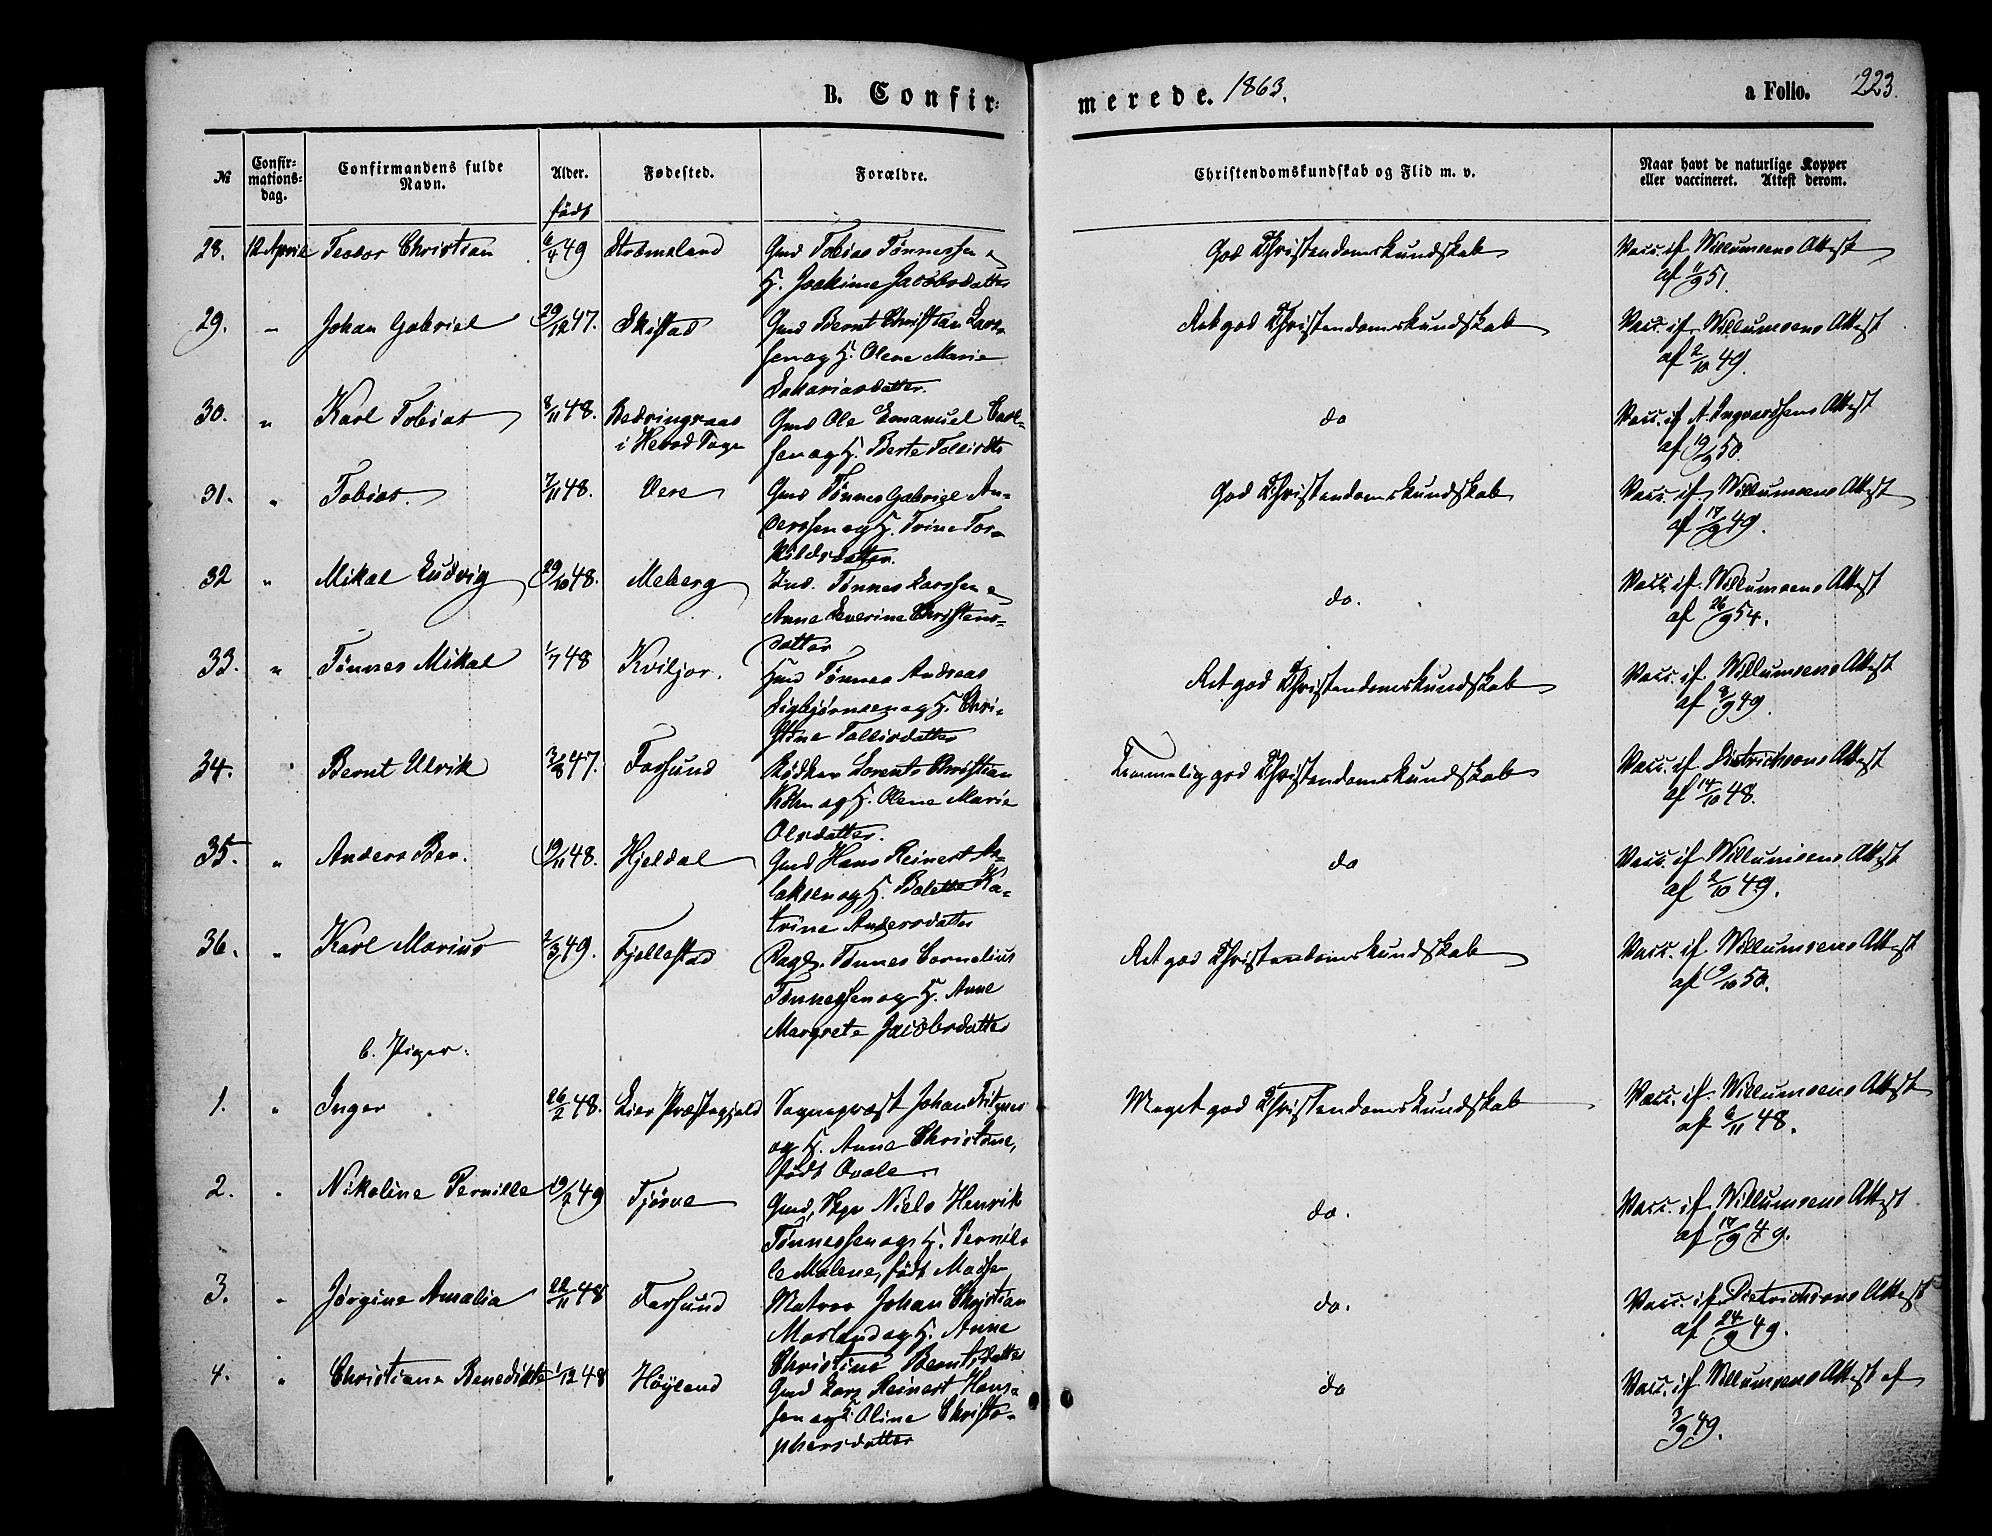 B. Confir-
merede. 1863.
a Folio. 223.
№
Confir-
mations-
dag.
Confirmandens fulde
Navn.
Alder.
født
Fødested.
Forældre.
Christendomskundskab og Flid m. v.
Naar havt de naturlige Kopper
eller vaccineret. Attest derom.
28. 12 April Teodor Christian 6/4 49 Strømsland Gmd Tobias Tønnessen o God Christendomskundskab Vacc. if. Willumsens Attest
H. Joakime Jacobsdatter af 51.
29. " Johan Gabriel 29/12 47. Skistad Gmd Bernt Christian Lars- Ret god Christendomskundskab Vacc. if. Willumsens Attest
sen og H. Olene Marie af 2/10 49.
Sakariasdatter.
30. " Karl Tobias 8/11 48. Gmd Ole Emanuel Carl- do Vacc. if. A. Ingvardsens Attest
i Herod Sogn sen og H. Berte Tollisdtr af 19/9 50.
31. " Tobias. 7/11 48. Vere Gmd Tønnes Gabriel An- God Christendomskundskab Vacc. if. Willumsens Attest
derssen og H. Trine Tor- af 17/9 49.
kildsdatter.
32 " Mikal Ludvig 29/10 48. Meberg Ind. Tønnes Larssen o do. Vacc. if. Willumsens Attest
Anne Severine Christens- af 26/9 54.
datter
33. " Tønnes Mikal 1/7 48 Kviljor. Hmd Tønnes Andreas Ret god Christendomskundskab Vacc. if. Willumsens Attest
Sigbjørnsen og H. Chri- af 3/9 49.
stine Tollisdatter
34. " Bernt Ulrik 3/8 47. Farsund Bødker Lorents Christian Temmelig god Christendomskundskab Vacc. if. Dietrichsons Attest
og H. Olene Marie af 14/10 48.
Olsdatter.
35. " Anders Ber. 19/11 48. Hjeldal Gmd Hans Reinert As- do Vacc. if. Willumsens Attest
laksen og H. Bolette Ka- af 2/10 49.
trine Andersdatter
36. " Karl Marius 2/3 49. Fjellestad Tønnes Cornelius Ret god Christendomskundskab Vacc. if. Willumsens Attest
Tønnessen og H. Anne af 9/10 50.
Margrete Jacobsdatter
b. Piger.
1. " Inger 26/2 48. Lier Præstegjeld Sogneprest Johan Fritzner Meget god Christendomskundskab Vacc. if. Willumsens Attest
og H. Anne Christine, af 6/11 48.
født Ovale
2. " Nikoline Pernille 19/2 49 Tjørve Gmd, Skpr Niels Henrik do. Vacc. if. Willumsens Attest
Tønnessen og H. Pernil- af 17/9 49.
le Malene, født Madsen
3. " Jørgine Amalia 22/11 48 Farsund Matros Johan Christian do. Vacc. if. Dietrichsons Attest
Mosland og H. Anne af 24/9 49.
Christine Berntsdatter
4. " Christiane Benedikte 1/12 48 Høyland Gmd Lars Reinert Han- do Vacc. if. Willumsens Attest af
sen og H. Oline Christo- 3/9 49.
phersdatter